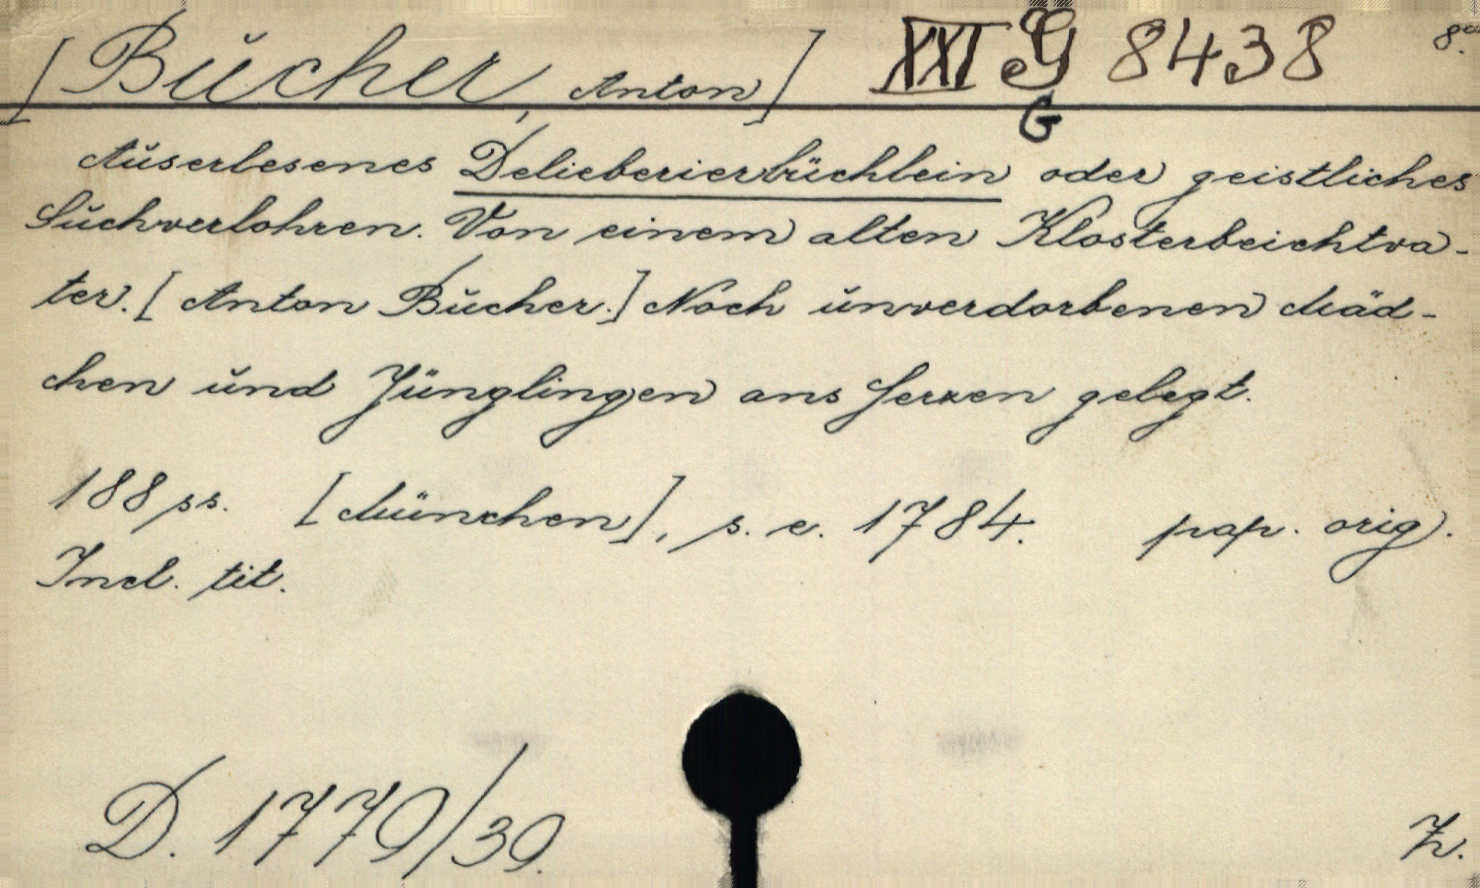 [Bŭcher, Anton] XXI G 8438 8º
G
Aŭserlesenes Delieberierbüchlein oder geistliches
Sŭchverlohren. Von einem alten Klosterbeichtva-
ter. [Anton Bŭcher.] Noch ŭnverdorbenen Mäd-
chen ŭnd Jünglingen ans Herzen gelegt.
188 ss. [München], s. e. 1784. pap. orig.
Incl. tit.
D. 1779/39. Z.